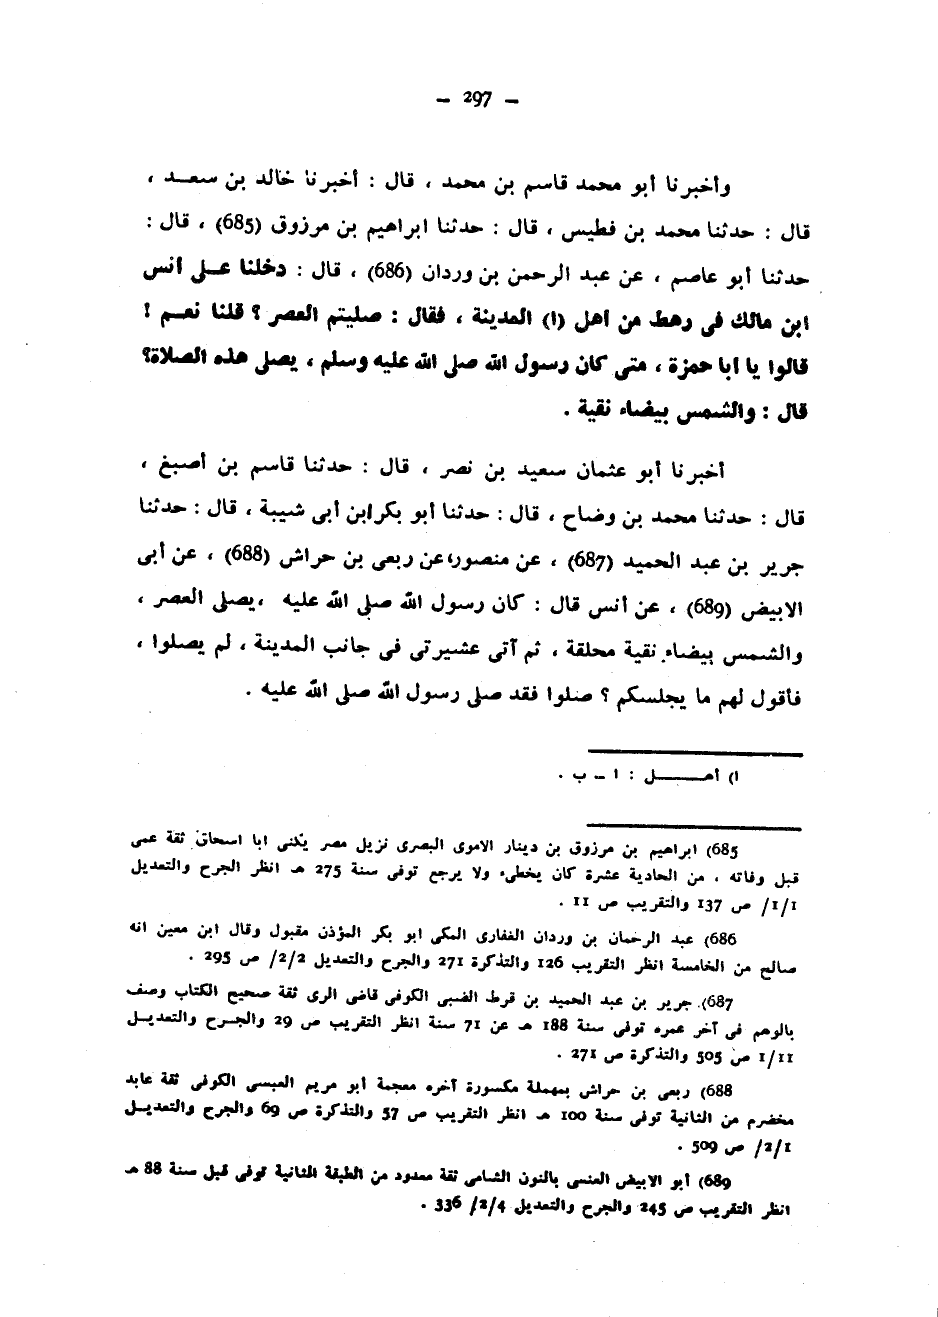 — 297 —
وأخبرنا أبو محمد قاسم بن محمد ، قال : أخبرنا خالد بن سعـــد ،
قال : حدثنا محمد بن فطيس ، قال : حدثنا ابراهيم بن مرزوق (685) ، قال :
حدثنا أبو عاصم ، عن عبد الرحمن بن وردان (686) ، قال : دخلنا عــلى أنس
ابن مالك فى رهط من أهل (1) المدينة ، فقال : صليتم العصر ؟ قلنا نعــم !
قالوا يا أبا حمزة ، متى كان رسول الله صلى الله عليه وسلم ، يصلى هذه الصلاة؟
قال : والشمس بيضاء نقية .
أخبرنا أبو عثمان سعيد بن نصر ، قال : حدثنا قاسم بن أصبغ ،
قال : حدثنا محمد بن وضاح ، قال : حدثنا أبو بكر ابن أبى شيبة ، قال : حدثنا
جرير بن عبد الحميد (687) ، عن منصور، عن ربعى بن حراش (688) ، عن أبى
الابيض (689) ، عن أنس قال : كان رسول الله صلى الله عليه ، يصلى العصر ،
والشمس بيضاء نقية محلقة ، ثم آتى عشيرتى فى جانب المدينة ، لم يصلوا ،
فأقول لهم ما يجلسكم ؟ صلوا فقد صلى رسول الله صلى الله عليه .
1) أهـــــل : ا ــ ب .
685) ابراهيم بن مرزوق بن دينار الاموى البصرى نزيل مصر يكنى ابا اسحاق ثقة عمى
قبل وفاته ، من الحادية عشرة كان يخطىء ولا يرجع توفى سنة 275 هـ انظر الجرح والتعديل
1/1/ ص 137 والتقريب ص 11 .
686) عبد الرحمان بن وردان الغفارى المكى ابو بكر المؤذن مقبول وقال ابن معين انه
صالح من الخامسة انظر التقريب 126 والتذكرة 271 والجرح والتعديل 2/2/ ص 295 .
687). جرير بن عبد الحميد بن قرط الضبى الكوفى قاضى الرى ثقة صحيح الكتاب وصف
بالوهم فى آخر عمره توفى سنة 188 هـ عن 71 سنة انظر التقريب ص 29 والجــرح والتعديــل
1/11 ص 505 والتذكرة ص 271 .
688) ربعى بن حراش بمهملة مكسورة آخره معجمة أبو مريم العبسى الكوفى ثقة عابد
مخضرم من الثانية توفى سنة 100 هـ انظر التقريب ص 57 والتذكرة ص 69 والجرح والتعديــل
2/1/ ص 509 .
689) أبو الابيض العنسى بالنون الشامى ثقة معدود من الطبقة الثانية توفى قبل سنة 88 هـ
انظر التقريب ص 245 والجرح والتعديل 2/4/ 336 .